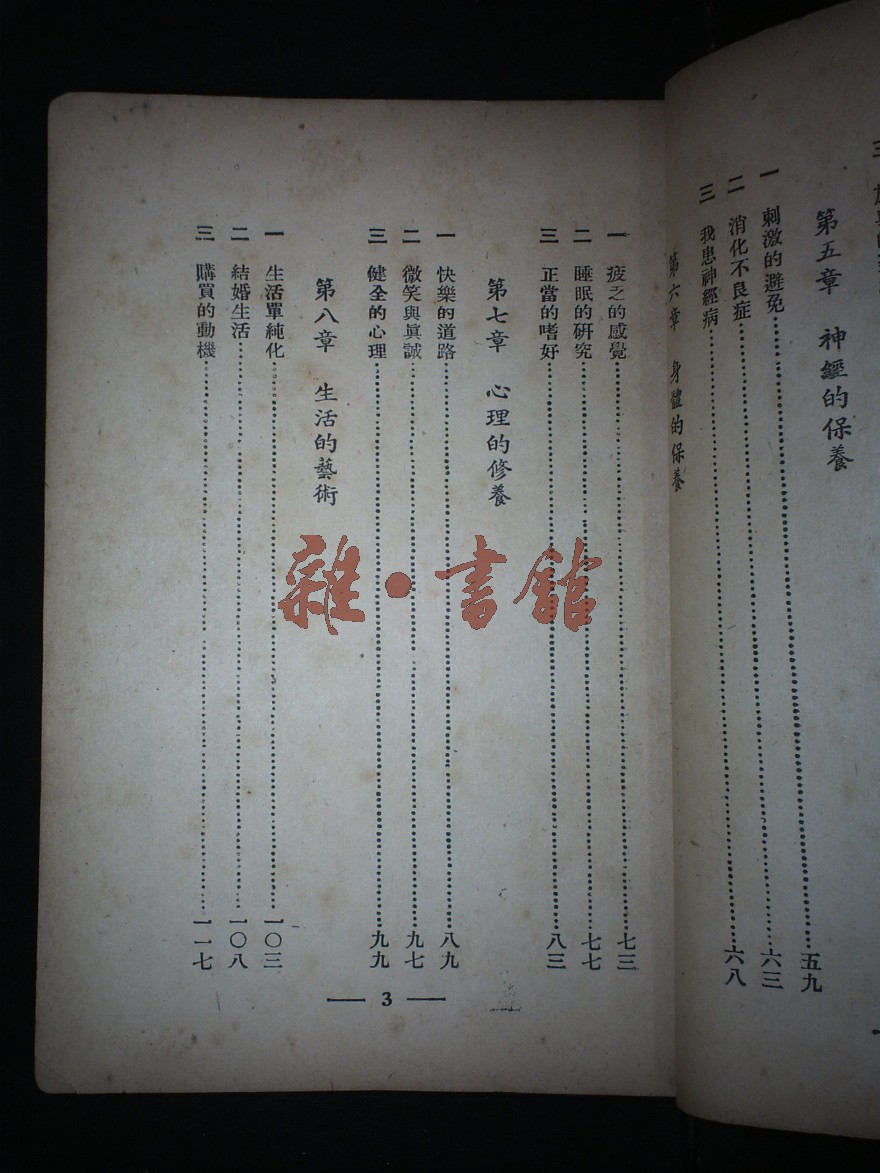 三
第五章 神經的保養
一 刺激的避免……五九
二 消化不良症……六三
三 我患神經病……六八
第六章 身體的保養
一 疲乏的感覺……七三
二 睡眠的研究……七七
三 正當的嗜好……八三
第七章 心理的修養
一 快樂的道路……八九
二 微笑與眞誠……九七
三 健全的心理……九九
第八章 生活的藝術
一 生活單純化……一〇三
二 結婚生活……一〇八
三 購買的動機……一一七
— 3 —
雜·書館